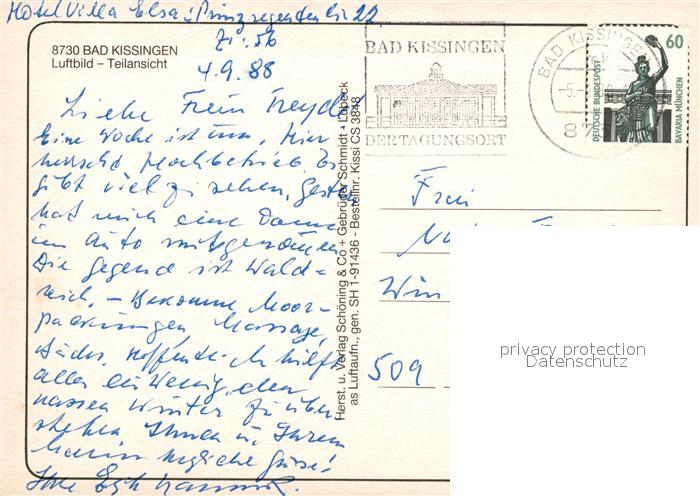 Hotel Villa Elsa : Prinzregentenstr 22
Zi. 56
8730 BAD KISSINGEN
Luftbild – Teilansicht
4.9.88
Liebe
Eine Woche ist um, Hier
herrscht Hochbetrieb. Es
gibt viel zu sehen, Gestern
hat mich eine Dame
im Auto mitgenommen
Die Gegend ist Wald-
reich, – Bekomme Moor-
packungen, Massage,
Bäder, hoffentlich hilft
alles ein wenig, den
nassen Winter zu über-
stehen Ihnen u. Ihrem
Mann
Ihre
Herst. u. Verlag Schöning & Co + Gebrüder Schmidt · Lübeck
as Luftaufn., gen. SH 1-91436 - Bestellnr. Kissi CS 3848
BAD KISSINGEN
DER TAGUNGSORT
BAD KISSINGEN
60
DEUTSCHE BUNDESPOST
BAVARIA MÜNCHEN
509
privacy protection
Datenschutz